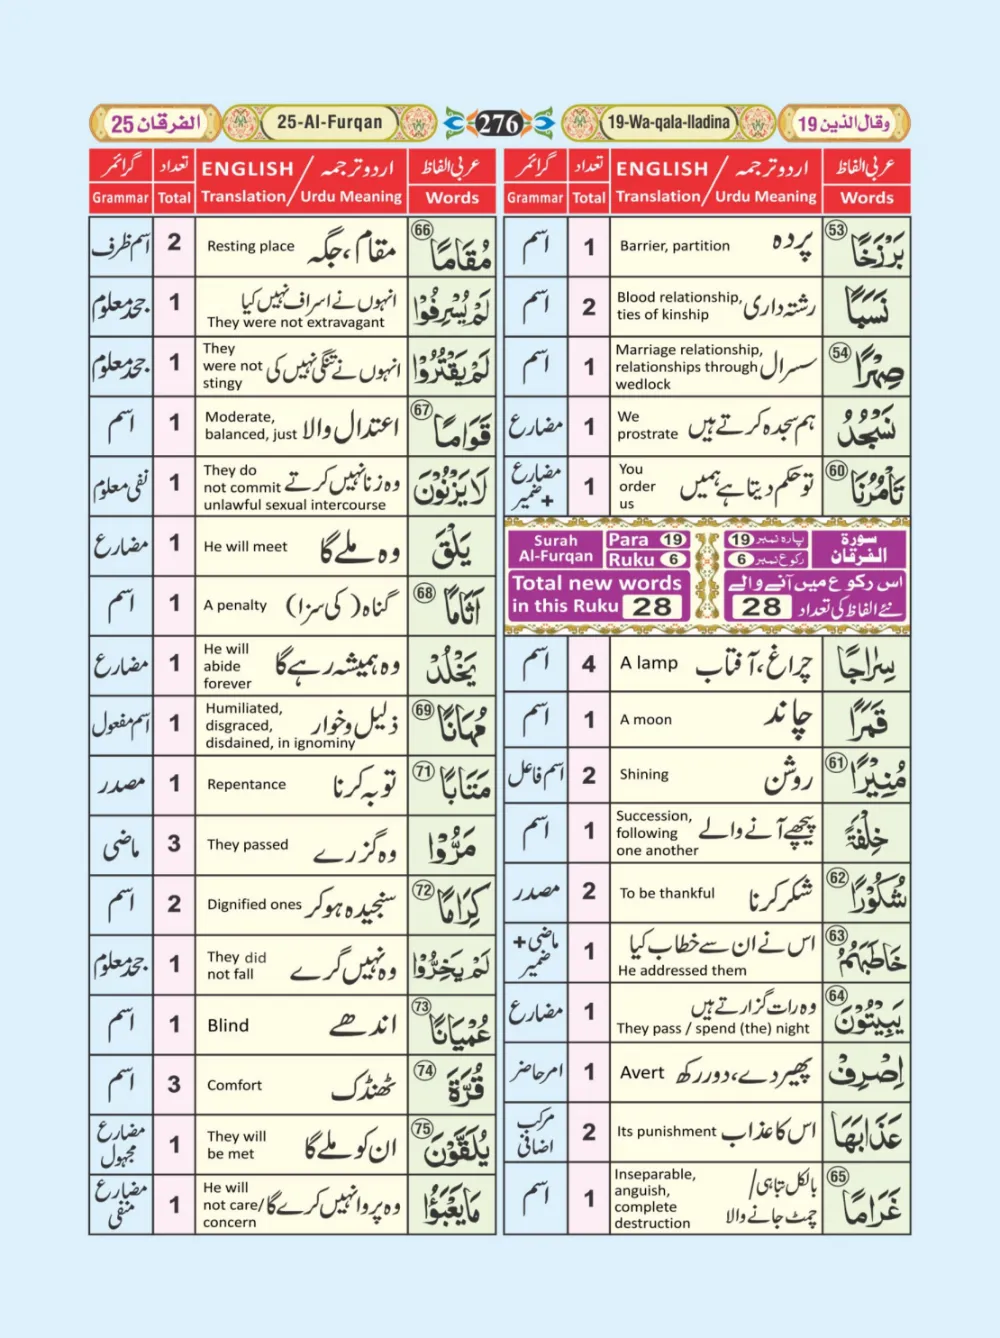 وقال الذین 19 19-Wa-qala-lladina 276 25-Al-Furqan الفرقان 25
عربی الفاظ اردو ترجمہ / ENGLISH تعداد گرائمر
Words Urdu Meaning / Translation Total Grammar
بَرْزَخًا ۝53 پردہ Barrier, partition 1 اسم
نَسَبًا رشتہ داری Blood relationship, ties of kinship 2 اسم
صِهْرًا ۝54 سسرال Marriage relationship, relationships through wedlock 1 اسم
نَسْجُدُ ہم سجدہ کرتے ہیں We prostrate 1 مضارع
تَأْمُرُنَا ۝60 تو حکم دیتا ہے ہمیں You order us 1 مضارع + ضمیر
سورۃ الفرقان پارہ نمبر 19 رکوع نمبر 6 Para 19 Ruku 6 Surah Al-Furqan
اس رکوع میں آنے والے نئے الفاظ کی تعداد 28 Total new words in this Ruku 28
سِرَاجًا چراغ، آفتاب A lamp 4 اسم
قَمَرًا چاند A moon 1 اسم
مُنِيْرًا ۝61 روشن Shining 2 اسم فاعل
خِلْفَةً پیچھے آنے والے Succession, following one another 1 اسم
شُكُوْرًا ۝62 شکر کرنا To be thankful 2 مصدر
خَاطَبَهُمُ ۝63 اس نے ان سے خطاب کیا He addressed them 1 ماضی + ضمیر
يَبِيْتُوْنَ ۝64 وہ رات گزارتے ہیں They pass / spend (the) night 1 مضارع
اصْرِفْ پھیر دے، دور رکھ Avert 1 امر حاضر
عَذَابَهَا اس کا عذاب Its punishment 2 مرکب اضافی
غَرَامًا ۝65 بالکل تباہی / چمٹ جانے والا Inseparable, anguish, complete destruction 1 اسم
عربی الفاظ اردو ترجمہ / ENGLISH تعداد گرائمر
Words Urdu Meaning / Translation Total Grammar
مُقَامًا ۝66 مقام، جگہ Resting place 2 اسم ظرف
لَمْ يُسْرِفُوْا انہوں نے اسراف نہیں کیا They were not extravagant 1 جحد معلوم
لَمْ يَقْتُرُوْا انہوں نے تنگی نہیں کی They were not stingy 1 جحد معلوم
قَوَامًا ۝67 اعتدال والا Moderate, balanced, just 1 اسم
لَا يَزْنُوْنَ وہ زنا نہیں کرتے They do not commit unlawful sexual intercourse 1 نفی معلوم
يَلْقَ وہ ملے گا He will meet 1 مضارع
اَثَامًا ۝68 گناہ (کی سزا) A penalty 1 اسم
يَخْلُدْ وہ ہمیشہ رہے گا He will abide forever 1 مضارع
مُهَانًا ۝69 ذلیل وخوار Humiliated, disgraced, disdained, in ignominy 1 اسم مفعول
مَتَابًا ۝71 توبہ کرنا Repentance 1 مصدر
مَرُّوْا وہ گزرے They passed 3 ماضی
كِرَامًا ۝72 سنجیدہ ہو کر Dignified ones 2 اسم
لَمْ يَخِرُّوْا وہ نہیں گرے They did not fall 1 جحد معلوم
عُمْيَانًا ۝73 اندھے Blind 1 اسم
قُرَّةَ ۝74 ٹھنڈک Comfort 3 اسم
يُلَقَّوْنَ ۝75 ان کو ملے گا They will be met 1 مضارع مجہول
مَا يَعْبَؤُا وہ پروا نہیں کرے گا He will not care/ concern 1 مضارع منفی